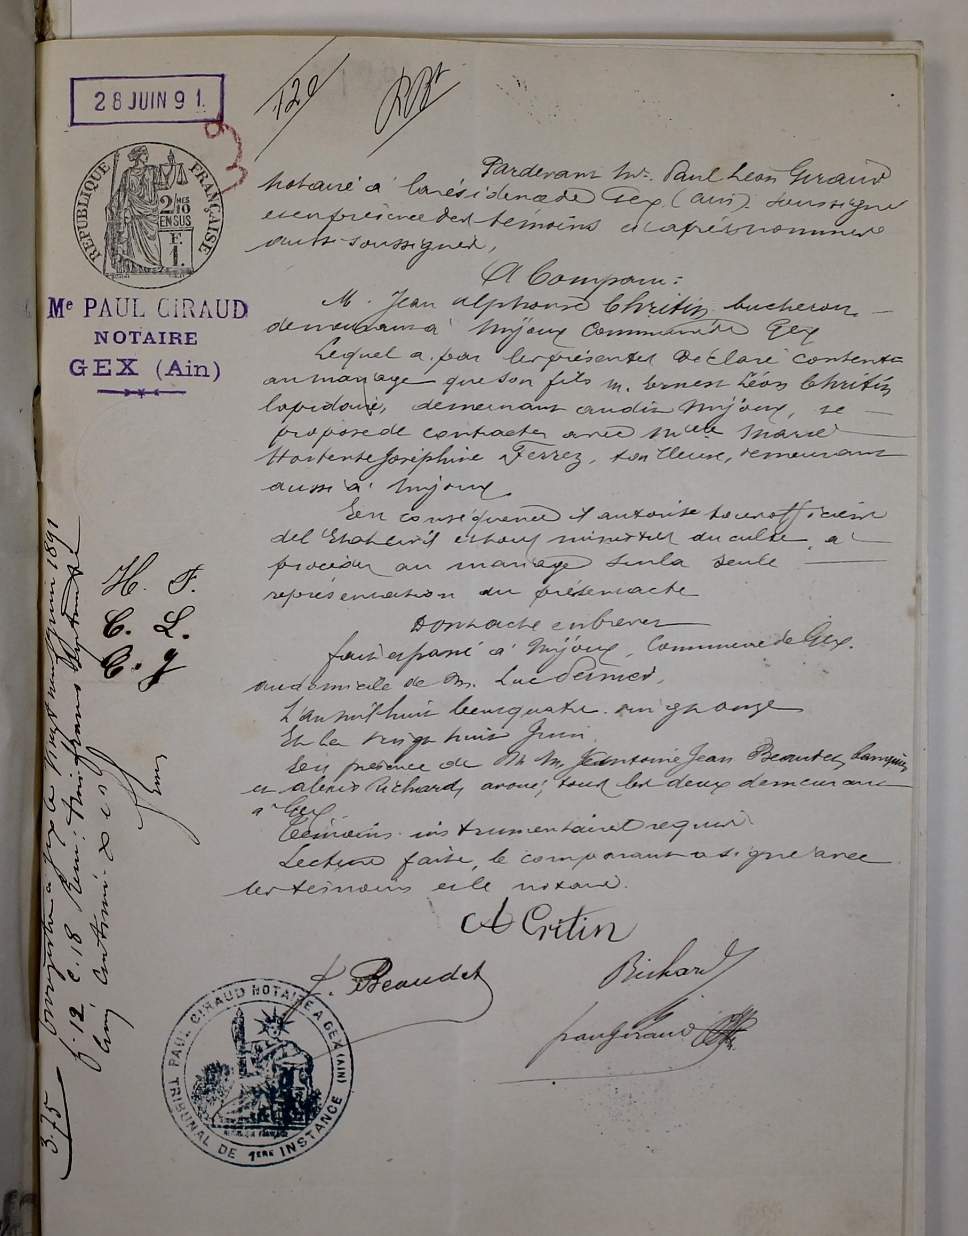 28 JUIN 91.
120
RÉPUBLIQUE FRANÇAISE
2/10 EN SUS
F. 1.
Me PAUL GIRAUD
NOTAIRE
GEX (Ain)
Pardevant Me. Paul Léon Giraud
notaire à la résidence de Gex (Ain) soussigné
et en présence des témoins ci après nommés
aussi soussignés,
A Comparu:
M. Jean Alphonse Chritin, bucheron
demeurant à Mijoux commune de Gex
Lequel a par les présentes déclaré consentir
au mariage que son fils M. Ernest Léon Chritin
lapidaire, demeurant audit Mijoux, se
propose de contracter avec Melle Marie
Hortense Joséphine Ferrez, tailleuse, demeurant
aussi à Mijoux.
En conséquence il autorise tous officiers
de l'Etat civil et tous ministres du culte à
procéder au mariage sur la seule
représentation du présent acte
Dont acte en brevet
fait et passé à Mijoux, commune de Gex.
au domicile de M. Luc
L'an mil huit cent quatre vingt onze
Et le vingt huit Juin
En présence de M.M. Antoine Jean Beaudet, banquier
et Alexis Richard, avoué, tous les deux demeurant
à Gex
témoins instrumentaires requis
Lecture faite, le comparant a signé avec
les témoins et le notaire.
A Critin
Beaudet
Richard
paul giraud
H. F.
C. L.
C. J
Enregistré à Gex le vingt neuf juin 1891
f. 12 c. 18 Reçu: trois francs
cinq centimes
3.75
PAUL GIRAUD NOTAIRE A GEX (AIN)
TRIBUNAL DE 1ERE INSTANCE